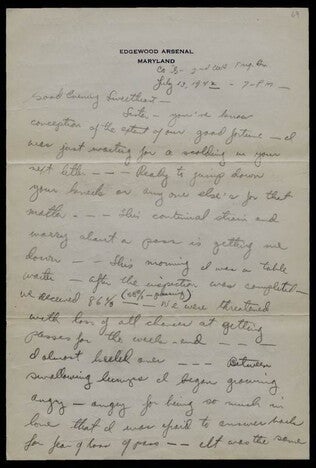 69
EDGEWOOD ARSENAL
MARYLAND
Co B- 2nd Tng. Bn
July 13, 1942 - 7-P.M -
Good Evening Sweetheart -
- you've know
conception of the extent of your good fortune - I
was just waiting for a scolding in your
next letter - - - Ready to jump down
your neck or any one else's for that
matter - - - This continual strain and
worry about a pass is getting me
down - - - This morning I was a table
waiter - after the inspection was completed -
we received 86% We were threatened
with loss of all chances at getting
passes for the week-end - - -
I almost keeled over - - - Between
swallowing lumps I began growing
angry - angry for being so much in
love that I was afraid to answer back
for fear of loss of pass - - It was the same